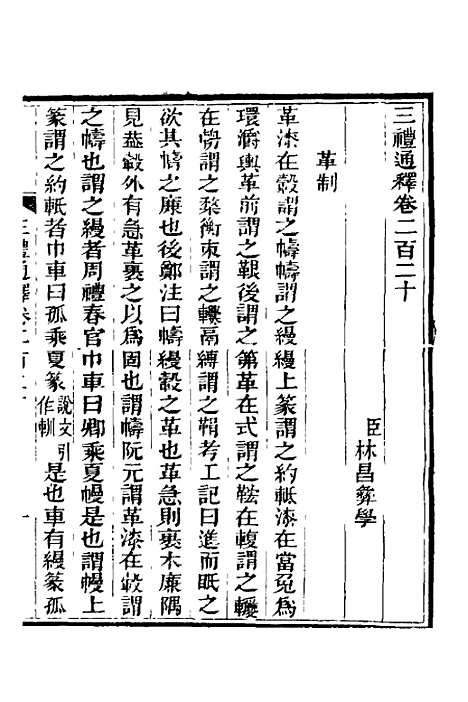 三禮通釋卷二百二十
臣林昌彝學
革制
革漆在轂謂之幬幬謂之縵縵上篆謂之約軝漆在當兔爲
環灂輿革前謂之鞎後謂之笰革在式謂之鞃在輹謂之轐
在勞謂之棃衡束謂之𨏔鬲縛謂之鞙考工記曰進而眂之
欲其幬之廉也後鄭注曰幬縵轂之革也革急則裹木廉隅
見葢轂外有急革裹之以爲固也謂幬阮元謂革漆在轂謂
之幬也謂之縵者周禮春官巾車曰卿乘夏幔是也謂幔上
篆謂之約軝者巾車曰孤乘夏篆說文引作𨊻是也車有縵篆孤